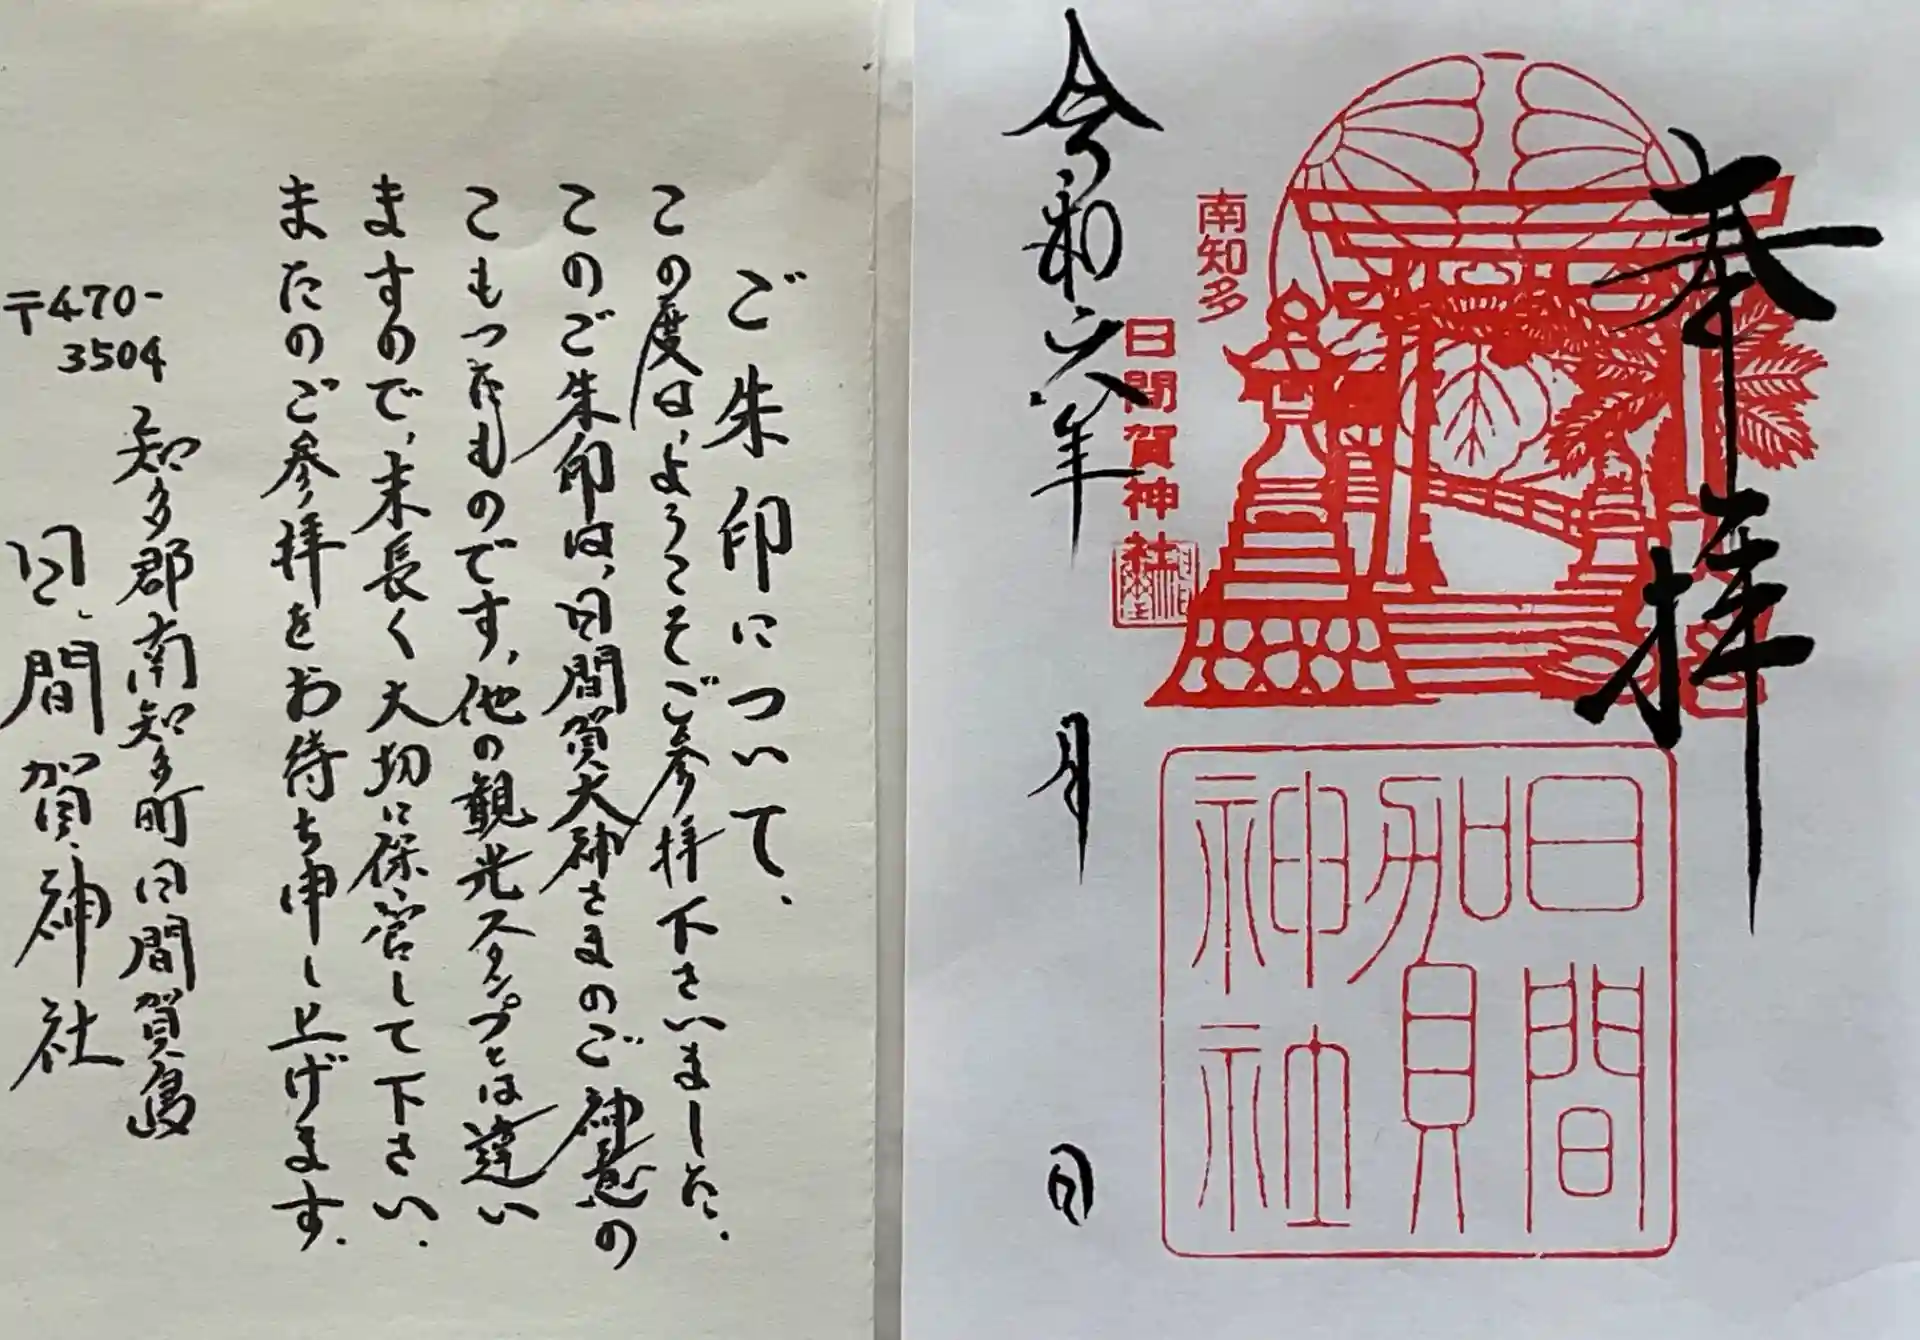 奉拝
南知多
日間賀神社
日間賀神社
令和六年
月
日
ご朱印について、
この度は、ようこそご参拝下さいました、
このご朱印は、日間賀大神さまのご神意の
こもったものです、他の観光スタンプとは違い
ますので、末長く大切に保管して下さい、
またのご参拝をお待ち申し上げます、
〒470-
3504
知多郡南知多町日間賀島
日間賀神社